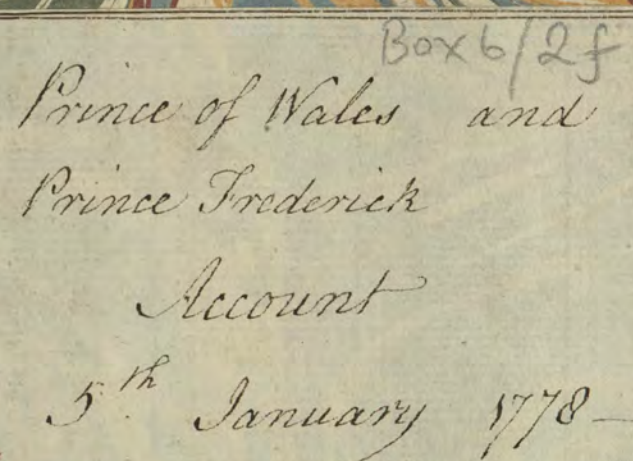 Box 6/2f
Prince of Wales and
Prince Frederick
Account
5th January 1778 –